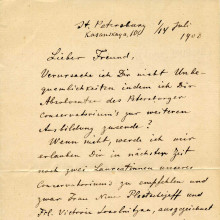 St. Petersburg 1/14 Juli
Kasanskaja, 10 1900
Lieber Freund,
Verursache ich Dir nicht Unbe-
quemlichkeiten indem ich Dir
Absolventen des Petersburger
Conservatoriums zur weiteren
Ausbildung zusende?
Wenn nicht, werde ich mir
erlauben Dir in nächster Zeit
noch zwei Laureatinnen unseres
Conservatoriums zu empfehlen und
zwar Frau Nina
Frl. Victoria ausgezeichnet